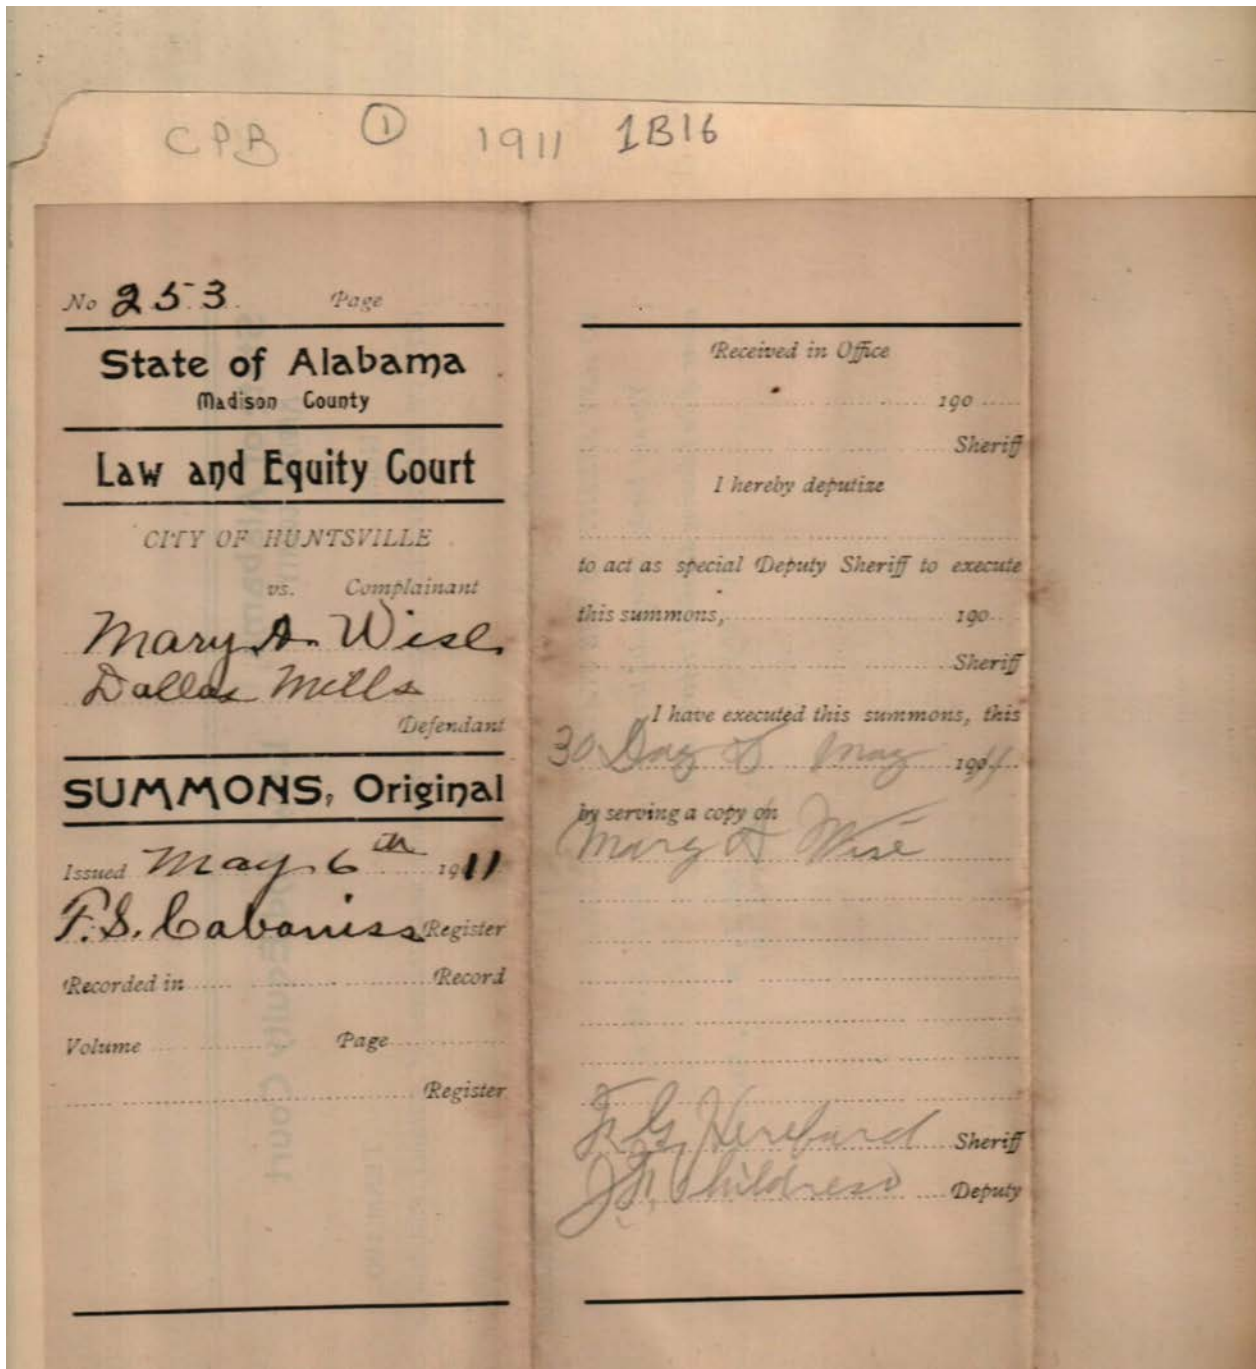 CPB ① 1911 1B16
No 253. Page
State of Alabama
Madison County
Law and Equity Court
CITY OF HUNTSVILLE
vs. Complainant
Mary A. Wise
Dallas Mills
Defendant
SUMMONS, Original
Issued May 6th 1911
F.S. Cabaniss Register
Recorded in Record
Volume Page
Register
Received in Office
190
Sheriff
I hereby deputize
to act as special Deputy Sheriff to execute
this summons, 190
Sheriff
I have executed this summons, this
30 Day of May 1911
by serving a copy on
Mary A Wise
Sheriff
Childress Deputy